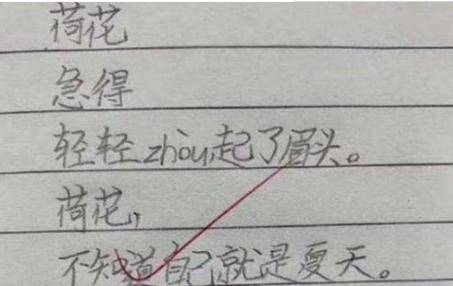 荷花
急得
轻轻zhou起了眉头。
荷花，
不知道自己就是夏天。